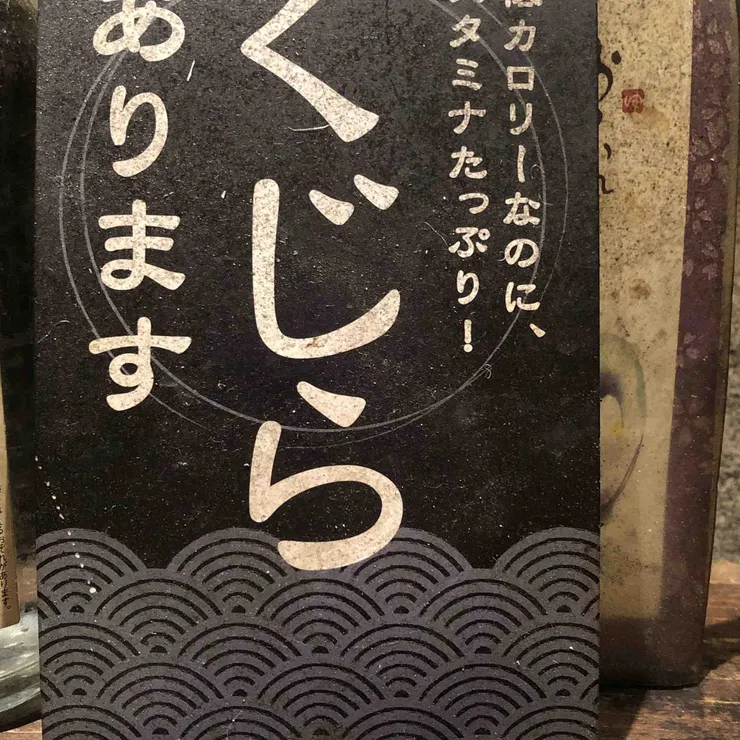 カロリーなのに、
タミナたっぷり！
くじら
あります